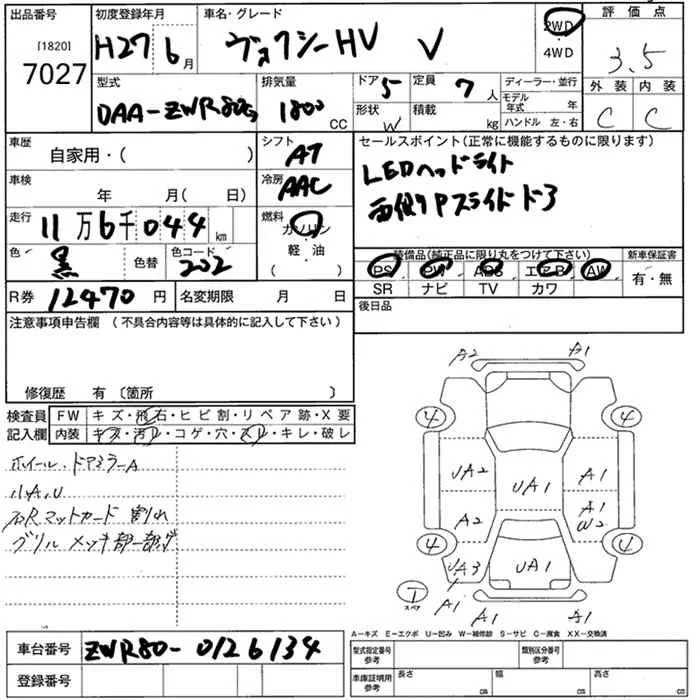 出品番号 初度登録年月 車名・グレード 評価点
[1820]
7027
H27 6月 ヴォクシーHV V 2WD・4WD 3.5
型式 排気量 ドア 5 定員 7人 ディーラー・並行 外装 内装
DAA-ZWR80G 1800CC 形状 W 積載 kg モデル年式 年 C C
ハンドル 左・右
車歴 自家用・( )
シフト AT
セールスポイント(正常に機能するものに限ります)
LEDヘッドライト
両側Pスライドドア
車検 年 月( 日)
冷房 AAC
走行 11万6千044km
燃料 ガソリン・軽・油 ( )
色 黒 色替 色コード 202
装備品(純正品に限り丸をつけて下さい) 新車保証書
PS PW ABS エアB AW 有・無
SR ナビ TV カワ
R券 12470円 名変期限 月 日
後日品
注意事項申告欄(不具合内容等は具体的に記入して下さい)
修復歴 有 〔箇所 〕
検査員 FW キズ・飛石・ヒビ割・リペア跡・X要
記入欄 内装 キズ・汚レ・コゲ・穴・スレ・キレ・破レ
ホイール・ドアミラーA
小A,U
右Rマットガード 割れ
グリル メッキ部一部
A2 A1
4 4
UA2 UA1 A1
A2 A1
W2
4 4
UA3 UA1
T
スペア
A1 A1 A1
A-キズ E-エクボ U-凹み W-補修跡 S-サビ C-腐食 XX-交換済
車台番号 ZWR80-0126134
型式指定番号 参考 類別区分番号 参考
登録番号
車庫証明用 参考 長さ cm 幅 cm 高さ cm